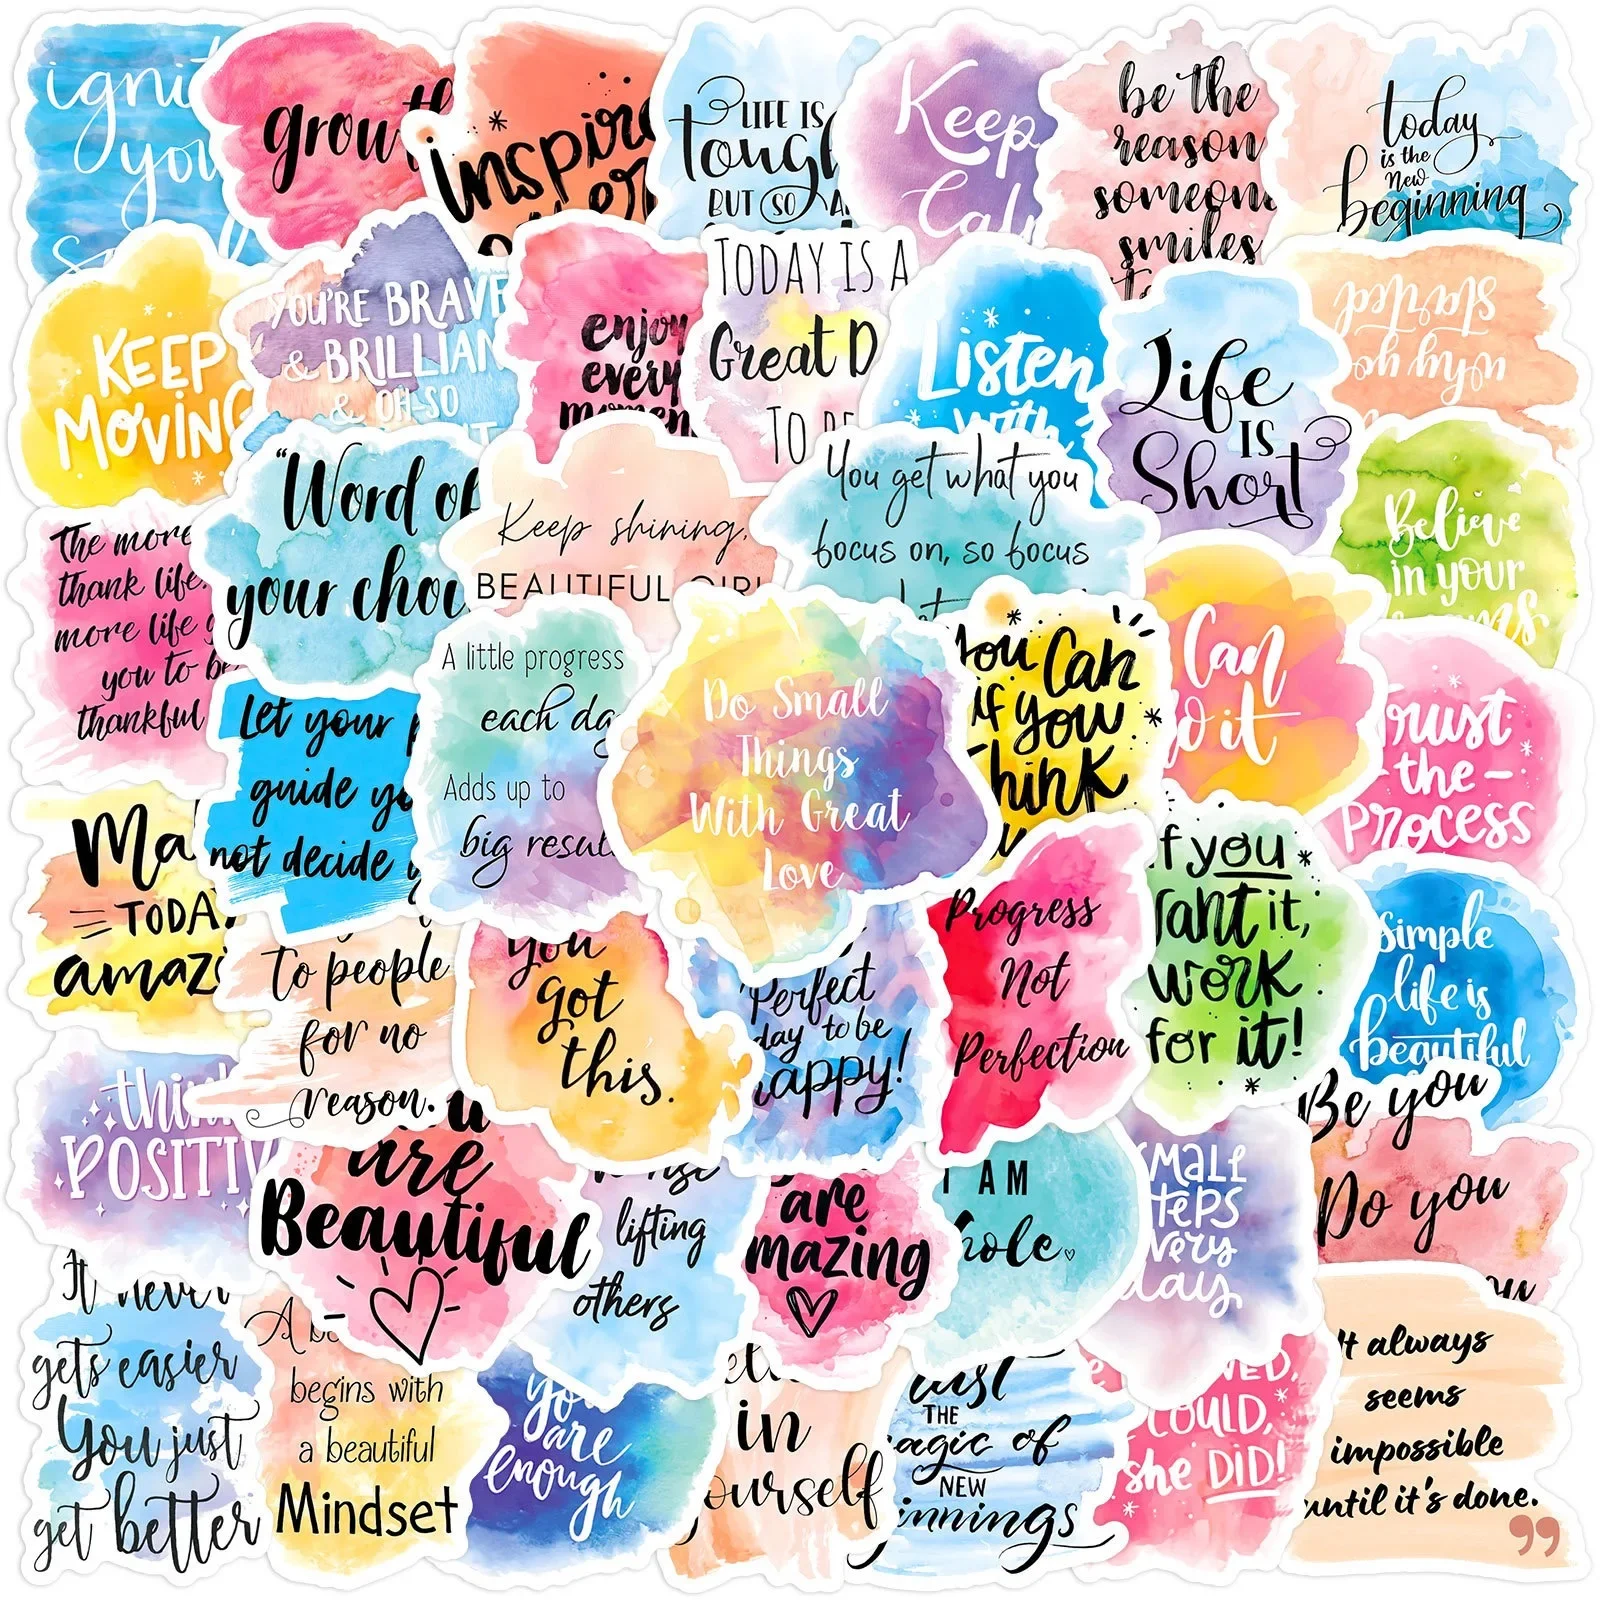 growth
LIFE IS
tough
BUT SO
Keep
be the
reason
someone
smiles
today
is the
New
beginning
KEEP
MOVING
YOU'RE BRAVE
& BRILLIANT
& OH-SO
enjoy
every
moment
TODAY IS A
Great D
TO BE
Listen
with
Life
IS
Short
why you
started
"Word of
your
Keep shining,
BEAUTIFUL GIRL
You get what you
focus on, so focus
Believe
in your
The more
thank life,
more life g
you to be
thankful
Let your
guide yo
not decide
A little progress
each day
Adds up to
big results
Do Small
Things
With Great
Love
You Can
if you
Think
Can
do it
Trust
-the-
Process
Ma
TODAY
amazi
To people
for no
reason.
you
got
this.
Perfect
day to be
happy!
Progress
Not
Perfection
If you
want it,
work
for it!
Simple
life is
beautiful
think
POSITIV
are
Beautiful
lifting
others
are
amazing
I AM
whole.
SMALL
STEPS
EVERY
day
Be you
Do you
It never
gets easier
You just
get better
A be
begins with
a beautiful
Mindset
you
are
enough
in
yourself
THE
magic of
NEW
COULD,
she DID!
It always
seems
impossible
until it's done.
”